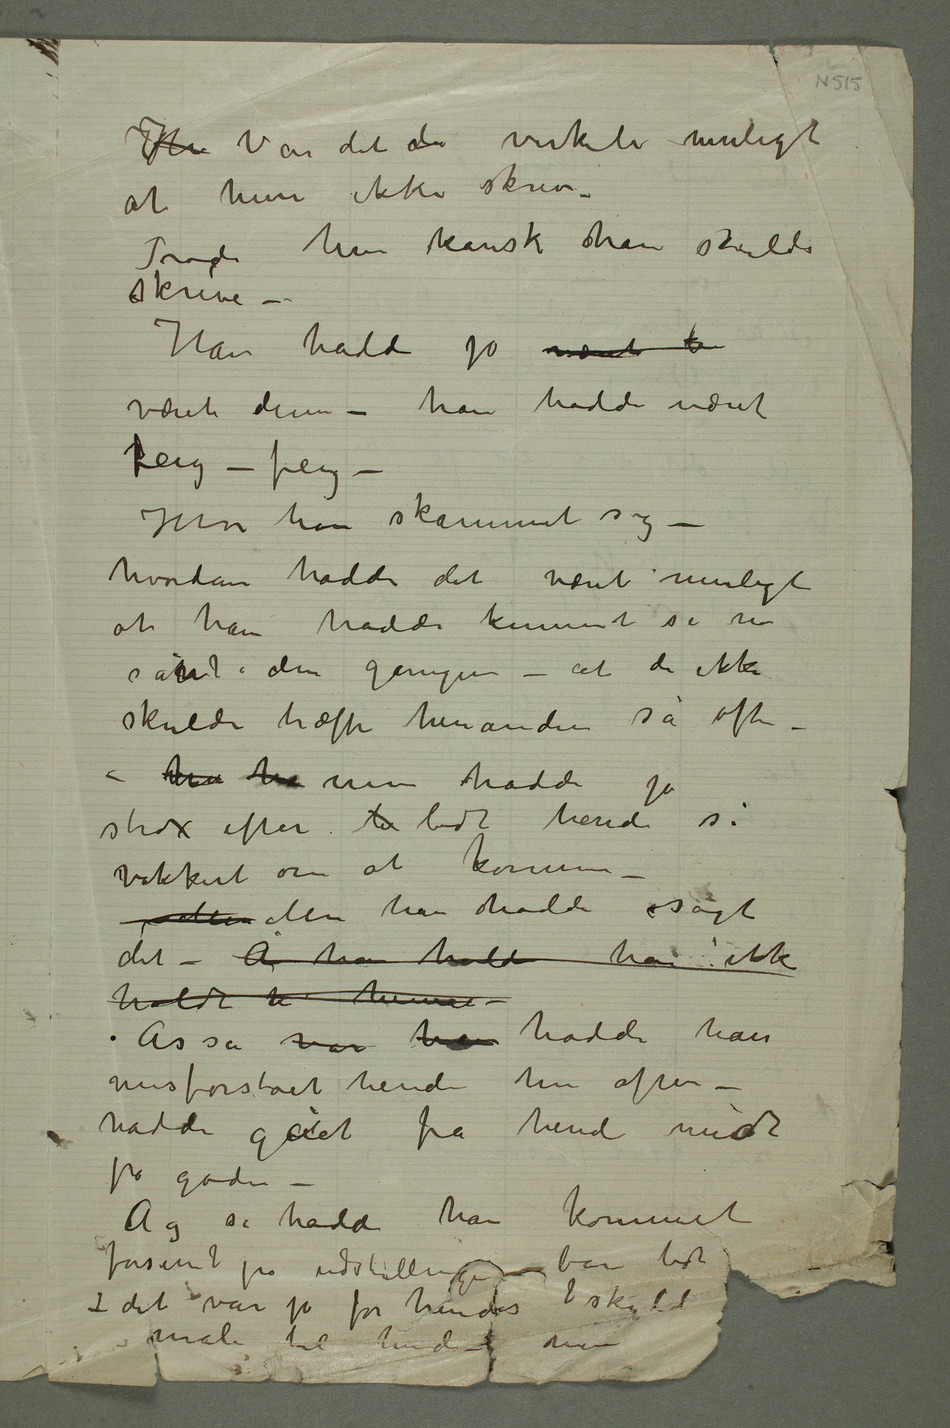 N 515
Var det da virkeli muligt
at hun ikke skrev –
Trode hun kansk han skulde
skrive –
Han hadde jo været
været dum – han hadde været
feig – feig –
Hvor han skammet sig –
hvordan hadde det været muligt
at han hadde kunnet si no
sånt den gangen – at de ikke
skulde træffe hinanden så ofte –
– hun hadde jo
strax efter bedt hende så
vakkert om at komme –
Men han hadde sagt
det – Å han havde han ikke
holdt henne –
Åsså var han hadde han
misforstået hende hin aften –
hadde gået fra hende midt
på gaden –
Åg så hadde han kommet
forsent på udstillingen – bare lidt
– det var jo for hendes skyld
male til hende –